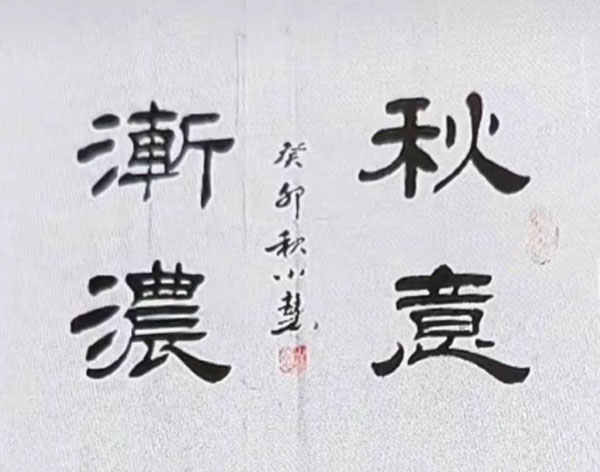 秋意
漸濃
癸卯秋小慧